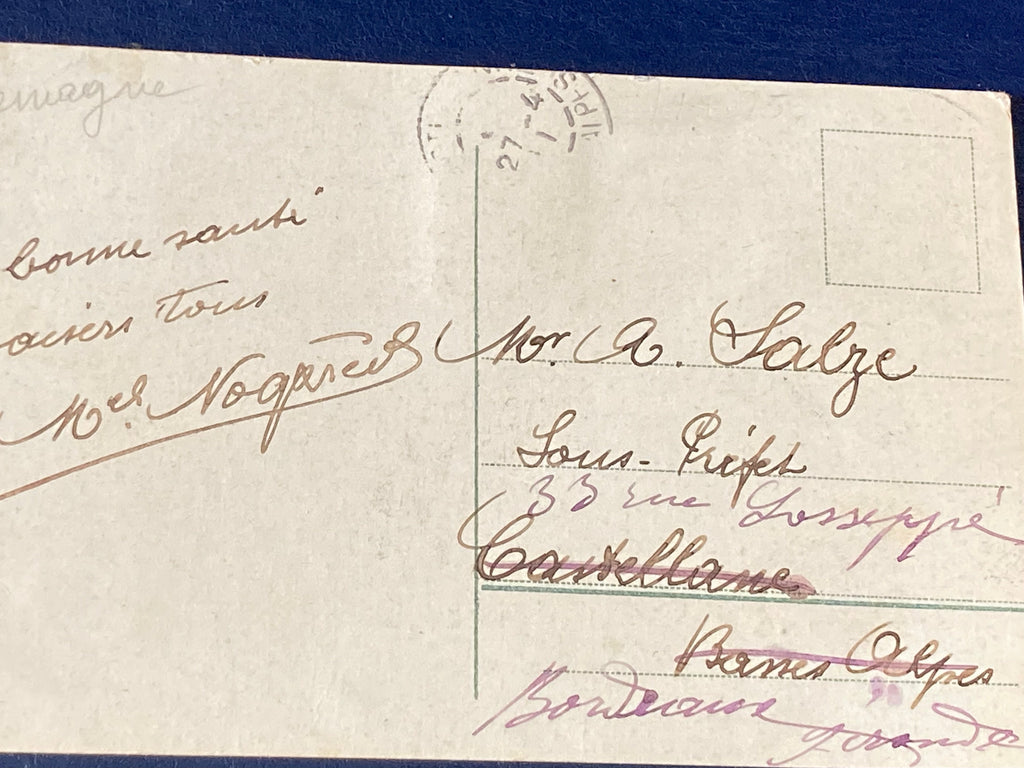 emagne
27 - 4
bonne santé
aisers Tous
Mel Nogarède
Mr. A. Salze
Sous-Préfet
33 rue
Castellane
Basses Alpes
Bordeaux
Gironde